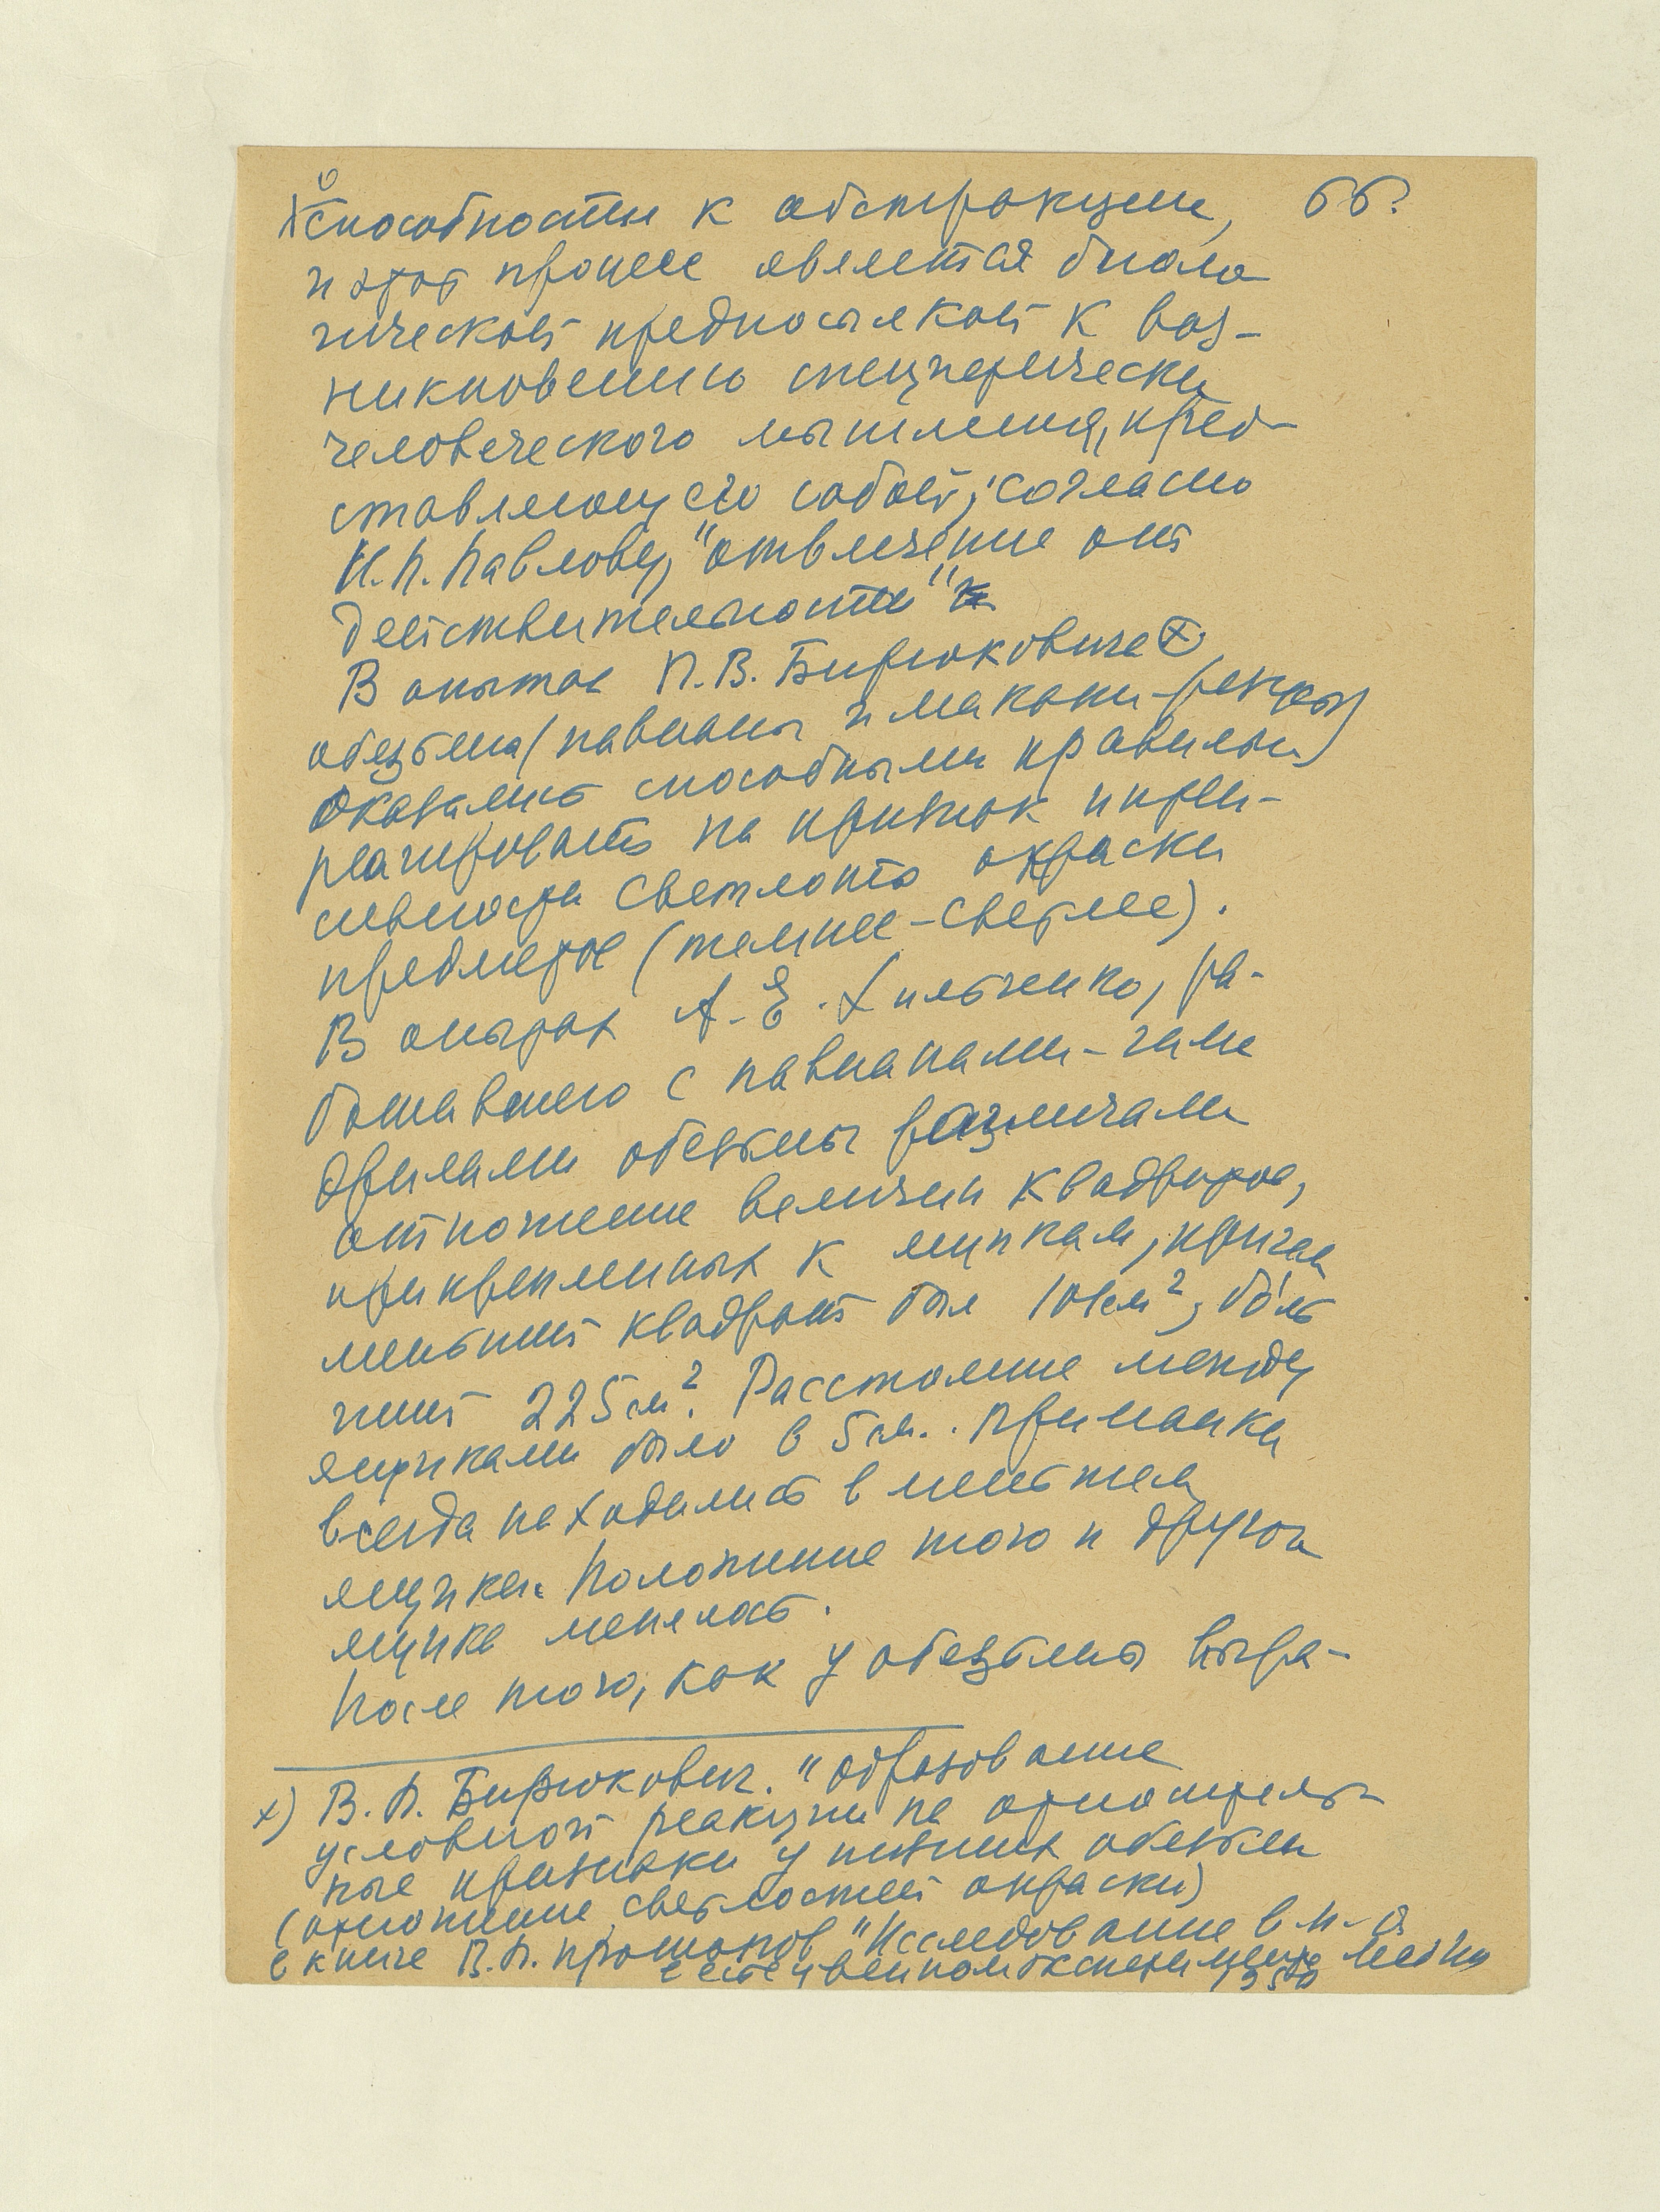 способности к абстракции, 66.
и этот процесс является биоло
гической предпосылкой к воз-
никновению специфически
человеческого мышления, пред-
ставляющего собой, согласно
И.П. Павлову, "отвлечение от
действительности"
В опытах П.В. Бирюковича х)
обезьяна (павианы и макаки-резусы)
оказались способными правильно
реагировать на признак интен-
сивности светлоты окраски
предметов (темнее-светлее).
В опытах А.Е. Хильченко, ра-
ботавшего с павианами-гама
дрилами обезьяны различали
отношение величин квадратов,
прикрепленных к ящикам, причем
меньший квадрат был 101см², боль
ший 225см². Расстояние между
ящиками было в 5см.. Приманка
всегда находилась в меньшем
ящике. Положение того и другого
ящика менялось.
После того, как у обезьяны выра-
х) В.П. Бирюкович. "Образование
условной реакции на относитель-
ные признаки у низших обезьян
(отношение светлостей окраски)
в книге В.П. Протопопов "Исследование в.н.д.
в естественном эксперименте
1950